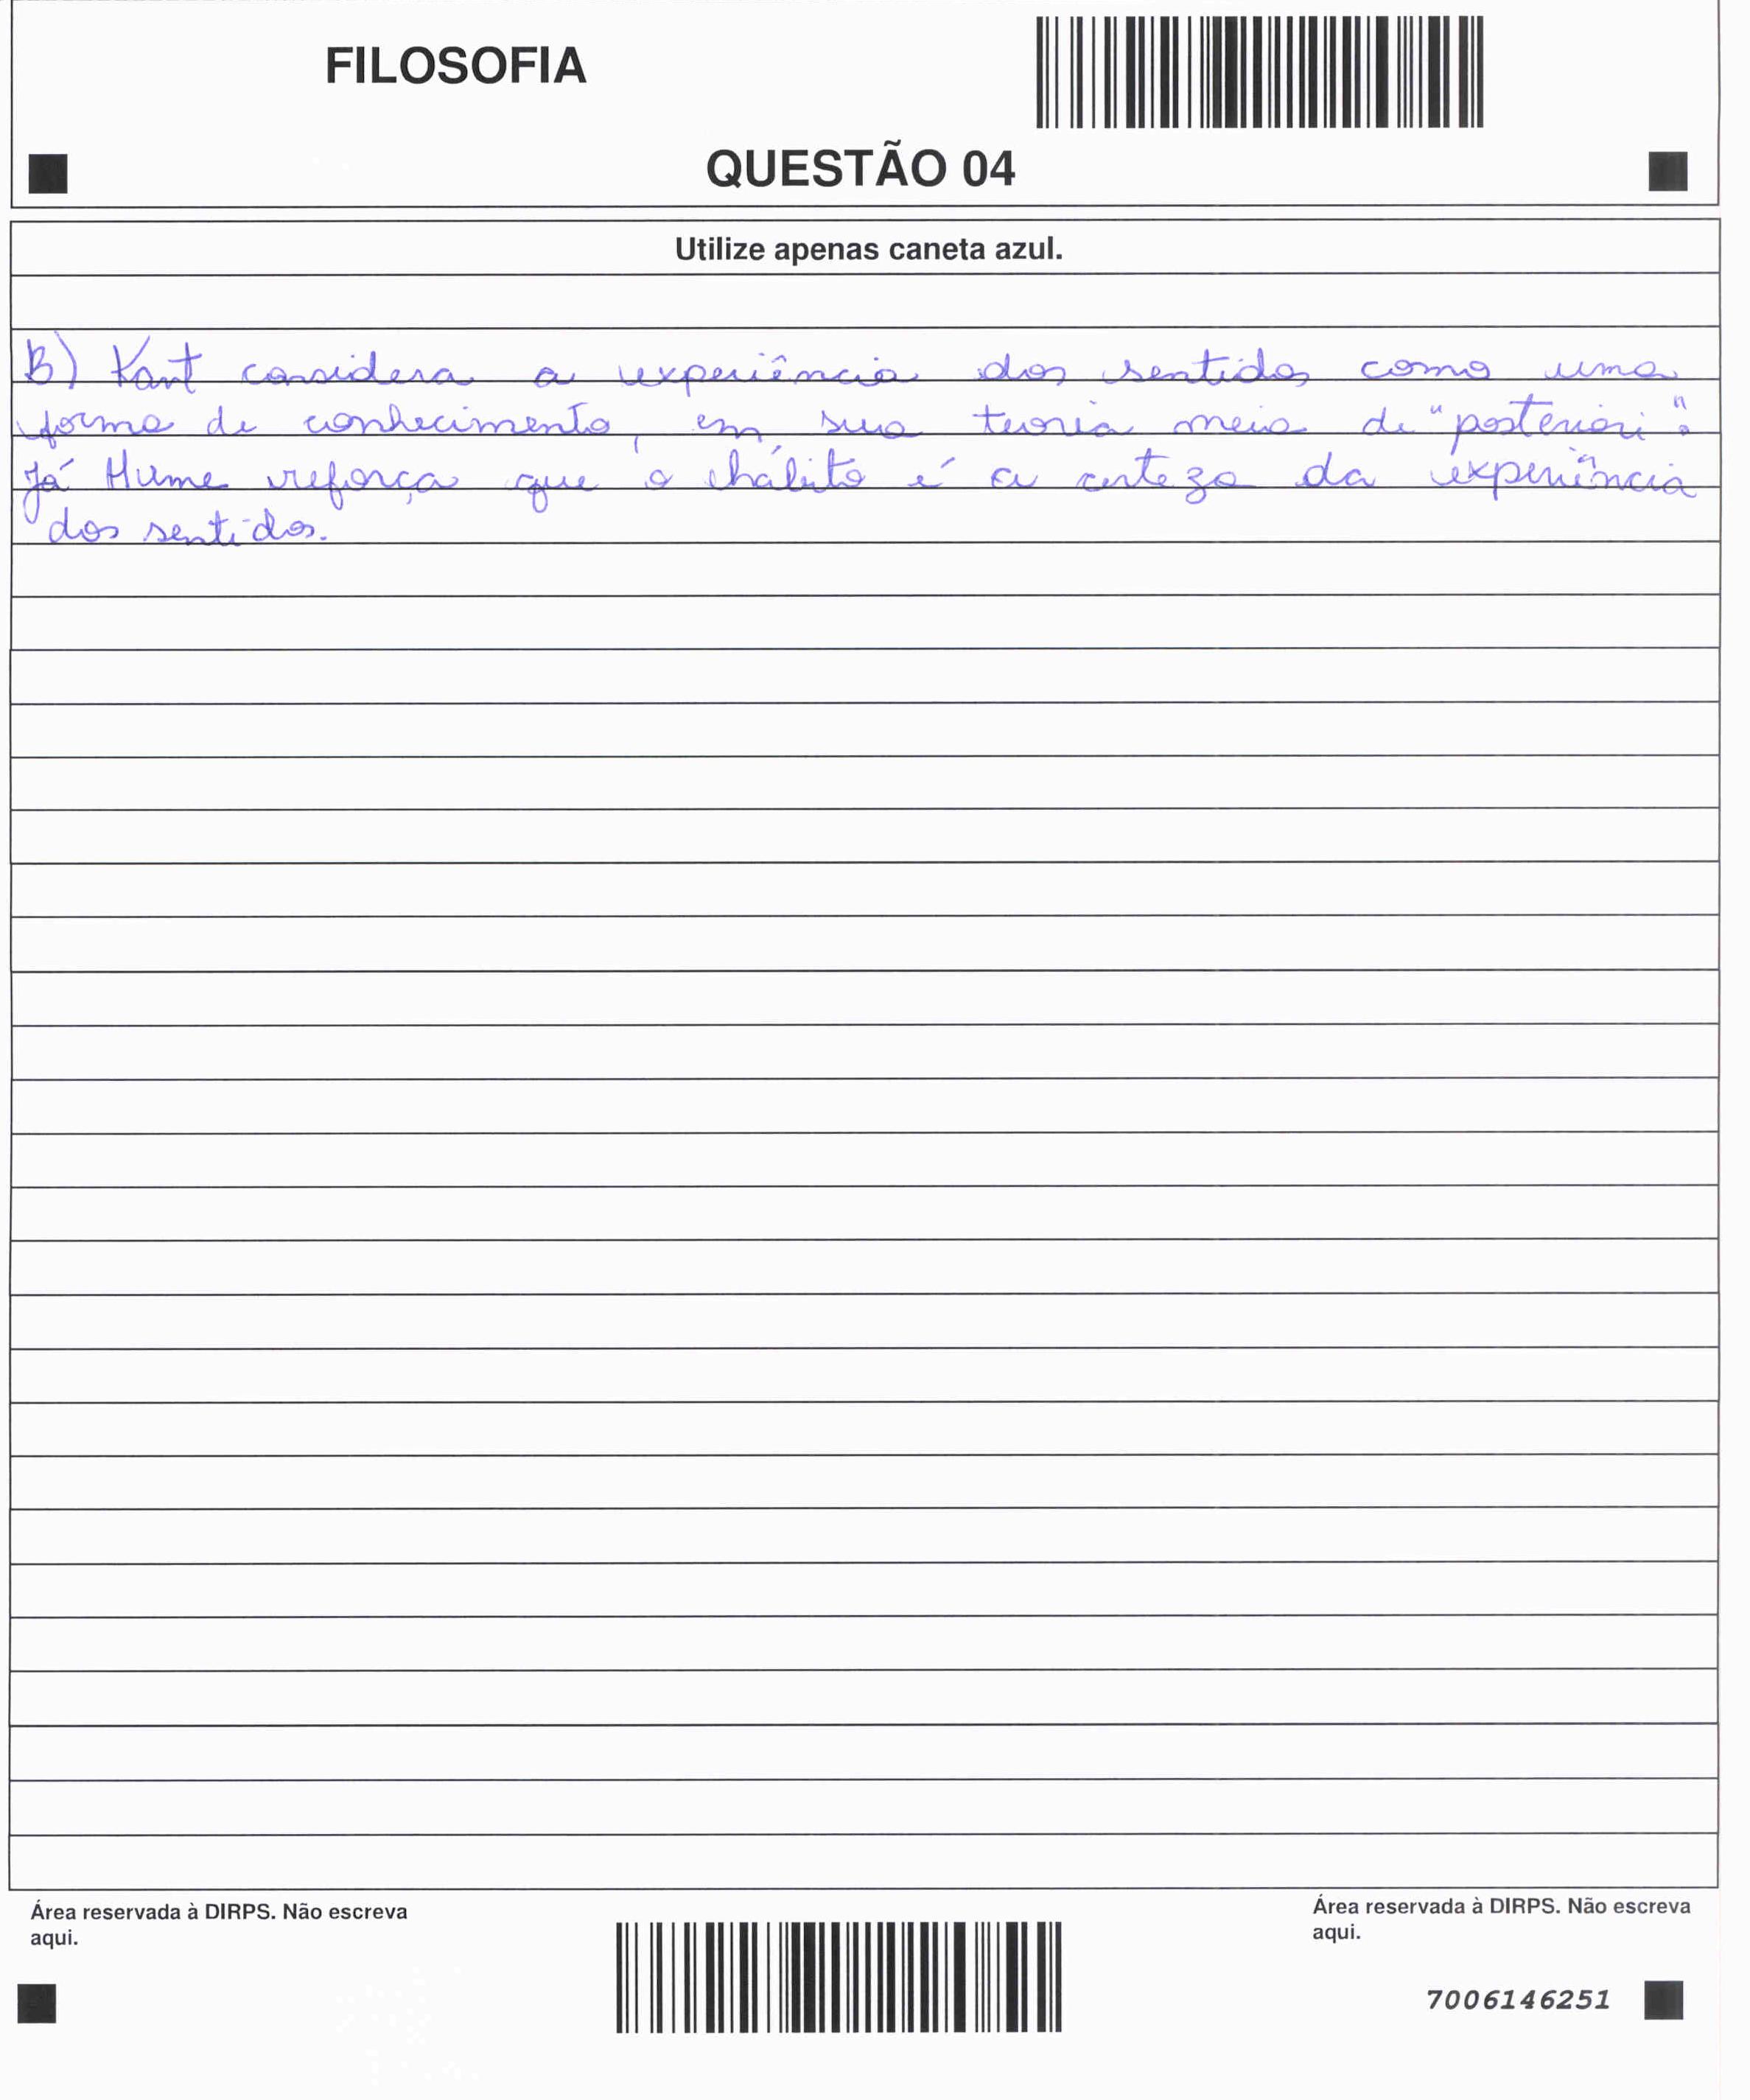 FILOSOFIA
QUESTÃO 04
Utilize apenas caneta azul.
B) Kant considera a experiência dos sentidos como uma
forma de conhecimento, em sua teoria meio de "posteriori".
Já Hume reforça que o hábito é a certeza da experiência
dos sentidos.
Área reservada à DIRPS. Não escreva
aqui.
Área reservada à DIRPS. Não escreva
aqui.
7006146251